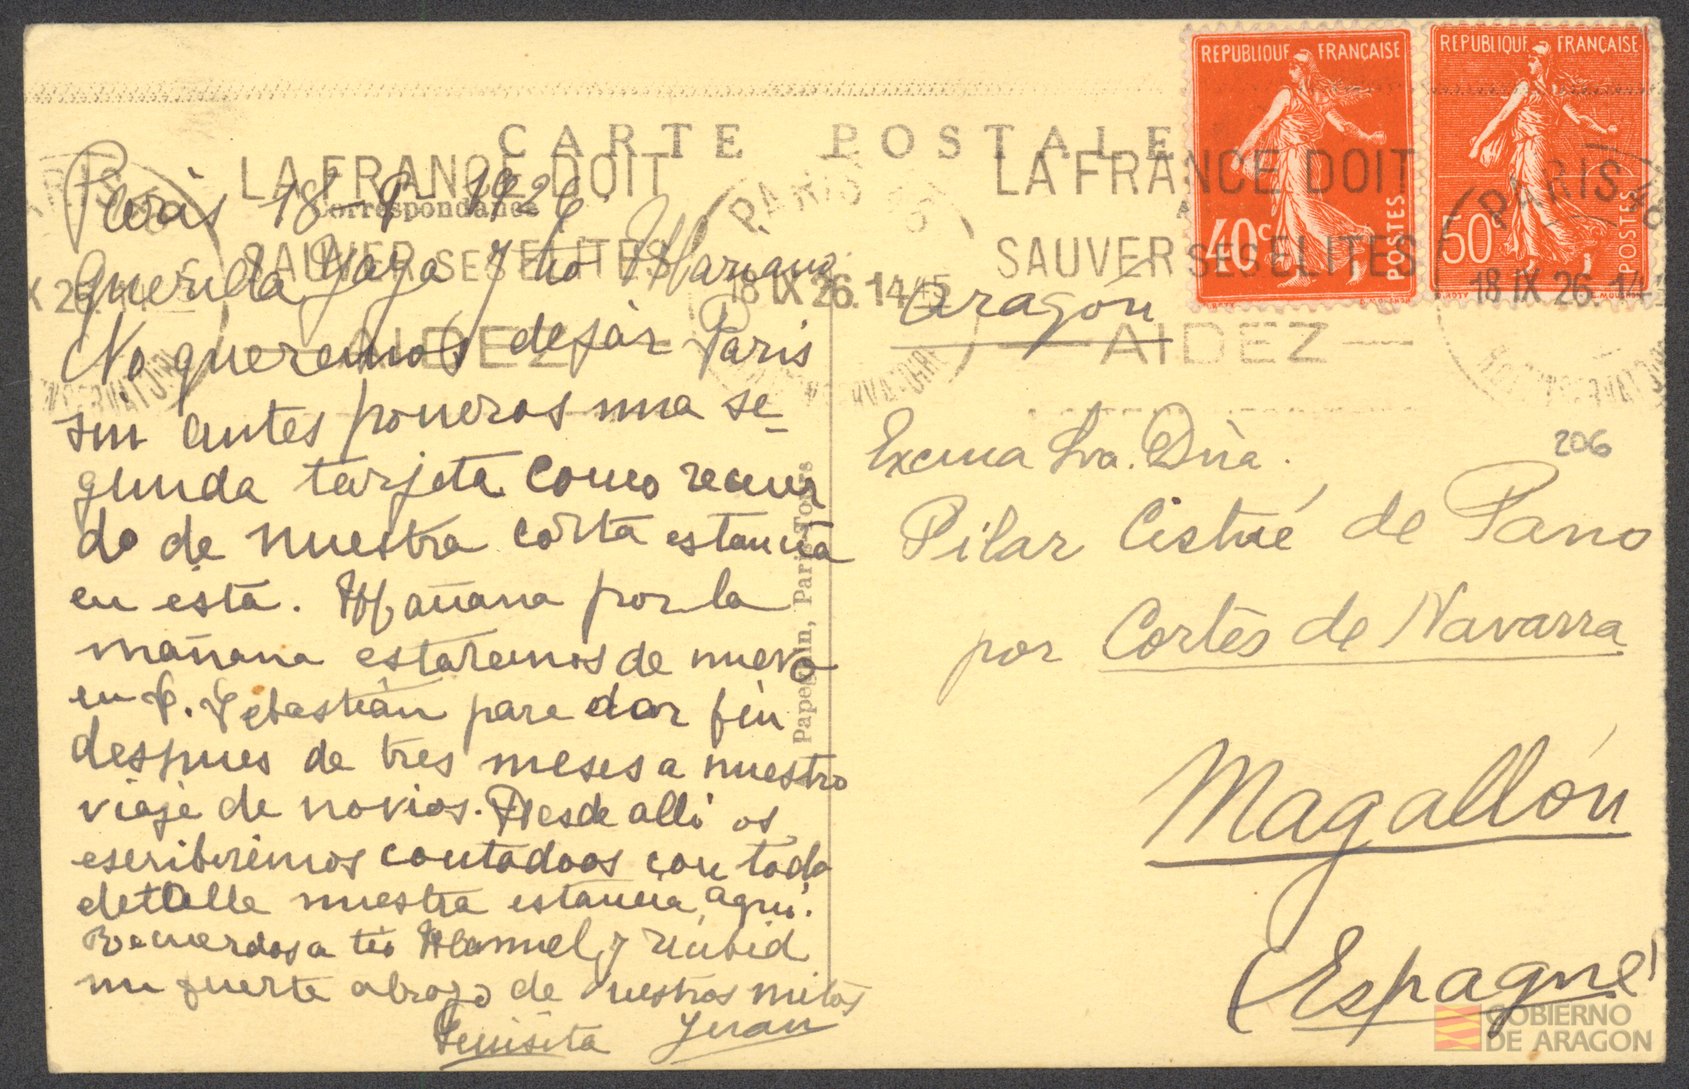 CARTE POSTALE
Correspondance
REPUBLIQUE FRANÇAISE
40c
POSTES
REPUBLIQUE FRANÇAISE
50c
POSTES
LA FRANCE DOIT
SAUVER SES ELITES
AIDEZ
PARIS
18 IX 26. 14 45
LA FRANCE DOIT
SAUVER SES ELITES
AIDEZ
PARIS
18 IX 26. 14
Paris 18-9-1926
Querida Yaya y tio Mariano
No queremos dejar Paris
sin antes poneros una se-
gunda tarjeta como recuer
do de nuestra corta estancia
en esta. Mañana por la
mañana estaremos de nuevo
en S. Sebastián para dar fin
despues de tres meses a nuestro
viaje de novios. Desde alli os
escribiremos contadoos con todo
detalle nuestra estancia aqui.
Recuerdos a tio Manuel y recibid
un fuerte abrazo de vuestros nietos
Luisita Juan
Papeghin, Paris-Tours
Aragón
206
Excma Sra. Dña.
Pilar Cistué de Pano
por Cortès de Navarra
Magallón
(Espagne)
GOBIERNO
DE ARAGON